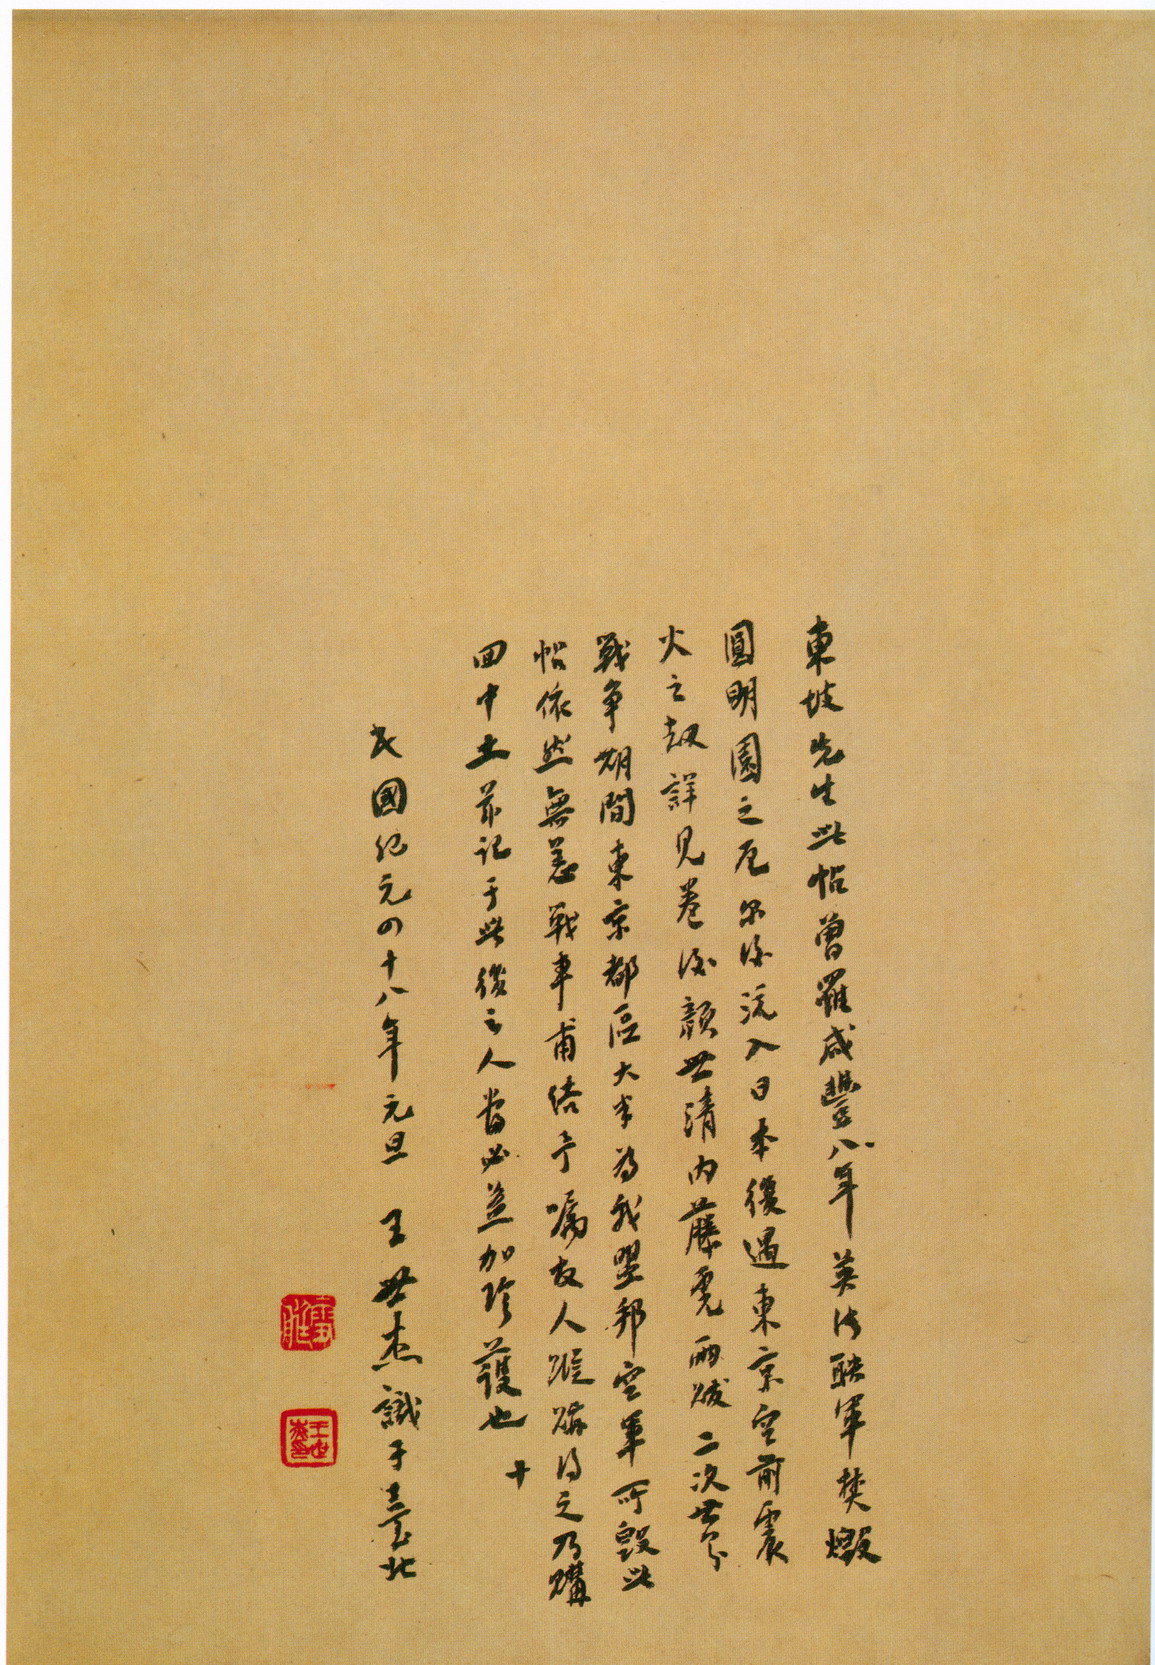 東坡先生此帖曾罹咸豐八年英法聯軍焚燬
圓明園之厄尔後流入日本復遇東京空前震
火之劫詳見卷後顏世清內藤虎兩跋二次世界
戰爭期間東京都區大半為我盟邦空軍所毀此
帖依然無恙戰事甫結予囑友人蹤購得之乃購
回中土茲記于此後之人當必益加珍護也
十
民國紀元四十八年元旦 王世杰識于臺北
雪艇
王世杰印